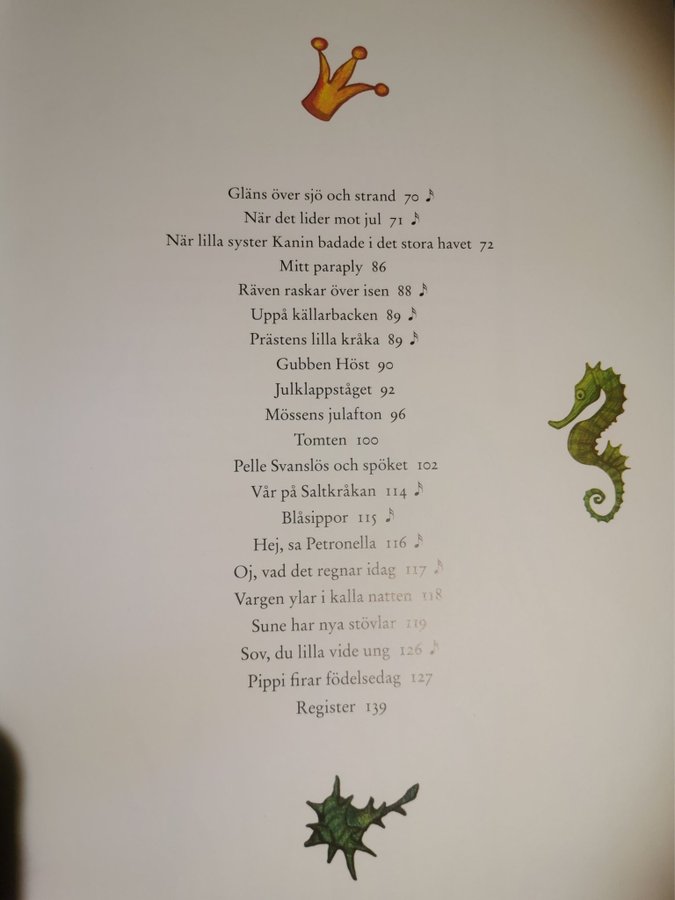 Gläns över sjö och strand 70 ♪
När det lider mot jul 71 ♪
När lilla syster Kanin badade i det stora havet 72
Mitt paraply 86
Räven raskar över isen 88 ♪
Uppå källarbacken 89 ♪
Prästens lilla kråka 89 ♪
Gubben Höst 90
Julklappståget 92
Mössens julafton 96
Tomten 100
Pelle Svanslös och spöket 102
Vår på Saltkråkan 114 ♪
Blåsippor 115 ♪
Hej, sa Petronella 116 ♪
Oj, vad det regnar idag 117 ♪
Vargen ylar i kalla natten 118
Sune har nya stövlar 119
Sov, du lilla vide ung 126 ♪
Pippi firar födelsedag 127
Register 139